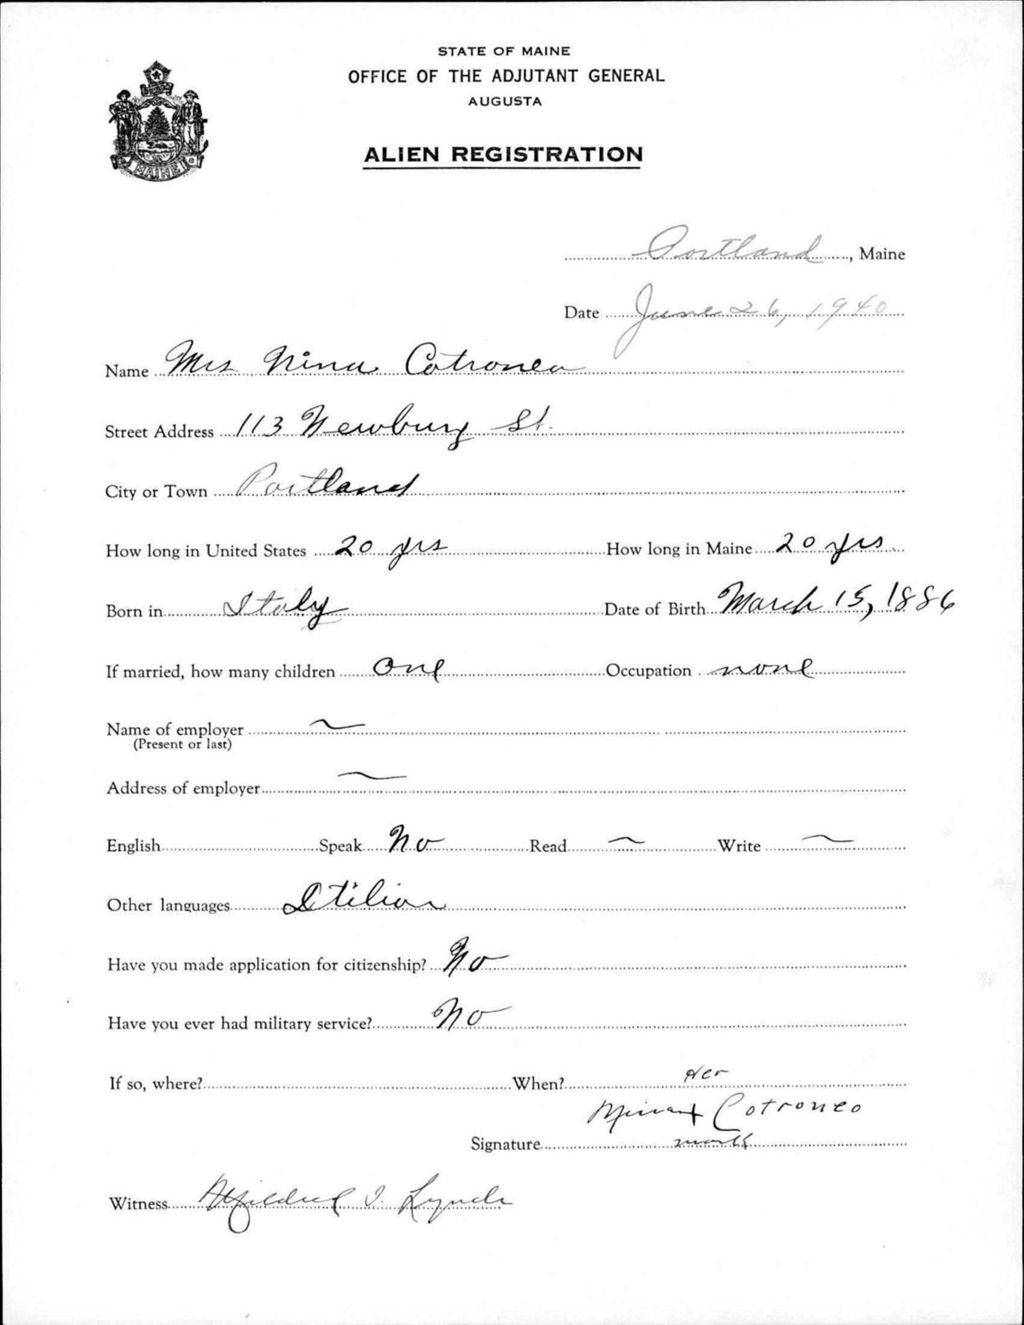 STATE OF MAINE
OFFICE OF THE ADJUTANT GENERAL
AUGUSTA
ALIEN REGISTRATION
MAINE
Portland, Maine
Date June 26, 1940
Name Mrs Nina Cotroneo
Street Address 113 Newbury St.
City or Town Portland
How long in United States 20 yrs How long in Maine 20 yrs
Born in Italy Date of Birth March 15, 1886
If married, how many children one Occupation none
Name of employer ~
(Present or last)
Address of employer ~
English Speak No Read ~ Write ~
Other languages Itilian
Have you made application for citizenship? No
Have you ever had military service? No
If so, where? When?
Her
Nina x Cotroneo
Signature mark
Witness Mildred I. Lynch